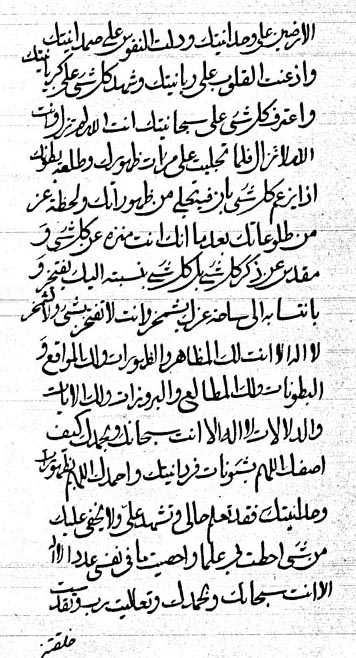 الارضين علی وحدانيتك ودلت النفوس علی صمدانيتك
واذعنت القلوب علی ربانيتك وشهد كلشیء علی كبريائيتك
واعترف كلشیء علی سبحانيتك انت الله لم تزل وانت
الله لا تزال فلما تجليت علی مرءات ظهورك وطلعة بطونك
اذا يزعم كلشیء بان فيه تجلی من ظهوراتك ولحظة عز
من طلوعاتك بعد علمنا انك انت منزه عن كلشیء و
مقدس عن ذكر كلشیء بل كلشیء بنسبته اليك يفتخر و
بانتسابه الی ساحة عزك يشمخر وانت لا تفتخر بشیء ولا تشمخر
لا اله الا انت لك المظاهر والظهورات ولك المواقع و
البطونات ولك المطالع والبروزات ولك الايات
والدلالات لا اله الا انت سبحانك وبحمدك كيف
اصفك اللهم بشئونات فردانيتك واحمدك اللهم بظهورات
وحدانيتك فقد تعلم حالی وتشهد علی ولا يخفی عليك
من شیء احطت بی علما واحصيت ما فی نفسی عددا لا اله
الا انت سبحانك وبحمدك وتعاليت رب وتقدست
خلقتنی